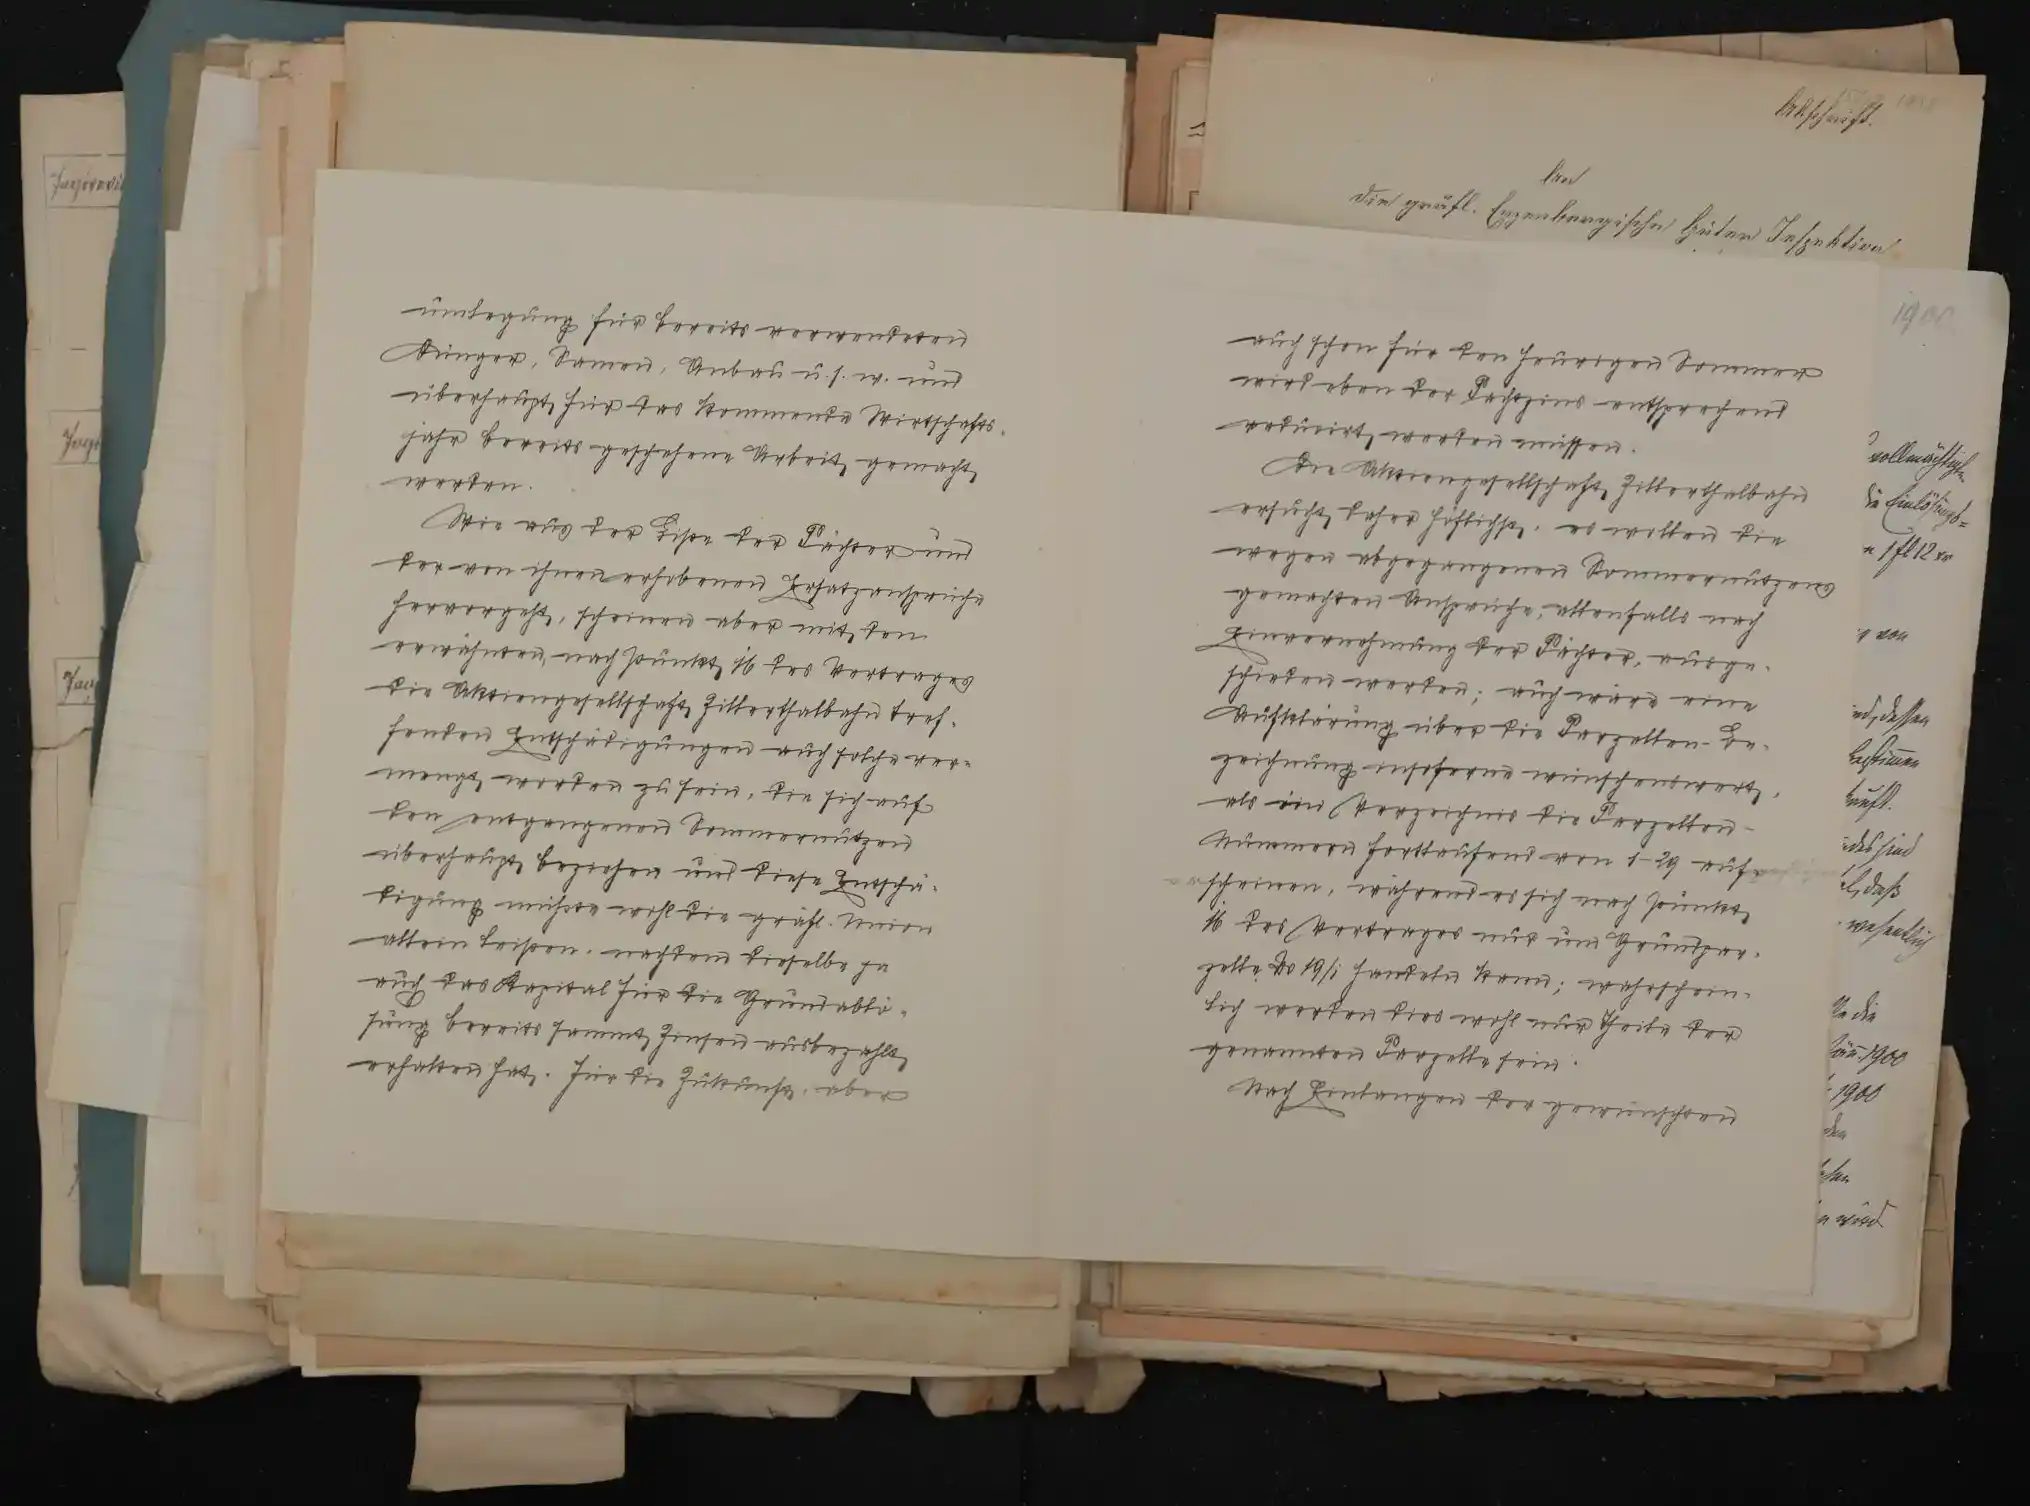 Abschrift.
An
die gräfl. Enzenbergische Güter Inspektion
1900
umlegung für bereits verwendeten
Dünger, Samen, Anbau u. s. w. und
überhaupt für das kommende Wirtschafts-
jahr bereits geschehene Arbeit gemacht
werden.
Wie aus der Liste der Pächter und
der von ihnen erhobenen Ersatzansprüche
hervorgeht, scheinen aber mit den
erwähnten, nach Punkt 16 des Vertrages
die Aktiengesellschaft Zillerthalbahn tref-
fenden Entschädigungen auch solche ver-
mengt worden zu sein, die sich auf
den entgangenen Sommernutzen
überhaupt beziehen und diese Entschä-
digung müsste wohl die gräfl. Union
allein leisten, nachdem dieselbe ja
auch das Kapital für die Grundablö-
sung bereits sammt Zinsen ausbezahlt
erhalten hat. Für die Zukunft, aber
auch schon für den heurigen Sommer
wird eben der Pachtzins entsprechend
reducirt werden müssen.
Die Aktiengesellschaft Zillerthalbahn
ersucht daher höflichst, es wollen die
wegen abgegangenen Sommernutzens
gemachten Ansprüche, allenfalls nach
Einvernehmung der Pächter, ausge-
schieden werden; auch wäre eine
Aufklärung über die Parzellen-Be-
zeichnung insoferne wünschenswert,
als im Verzeichnis die Parzellen-
Nummern fortlaufend von 1-29 auf-
scheinen, während es sich nach Punkt
16 des Vertrages nur um Grundpar-
zelle No 19/1 handeln kann; wahrschein-
lich werden dies wohl nur Theile der
genannten Parzelle sein.
Nach Einlangen der gewünschten
vollmächtigte
die Einlösungs-
1 fl 12 xr
von
dessen
bestimmen
des sind
daß
wesentlich
die
1900
1900
den
wird